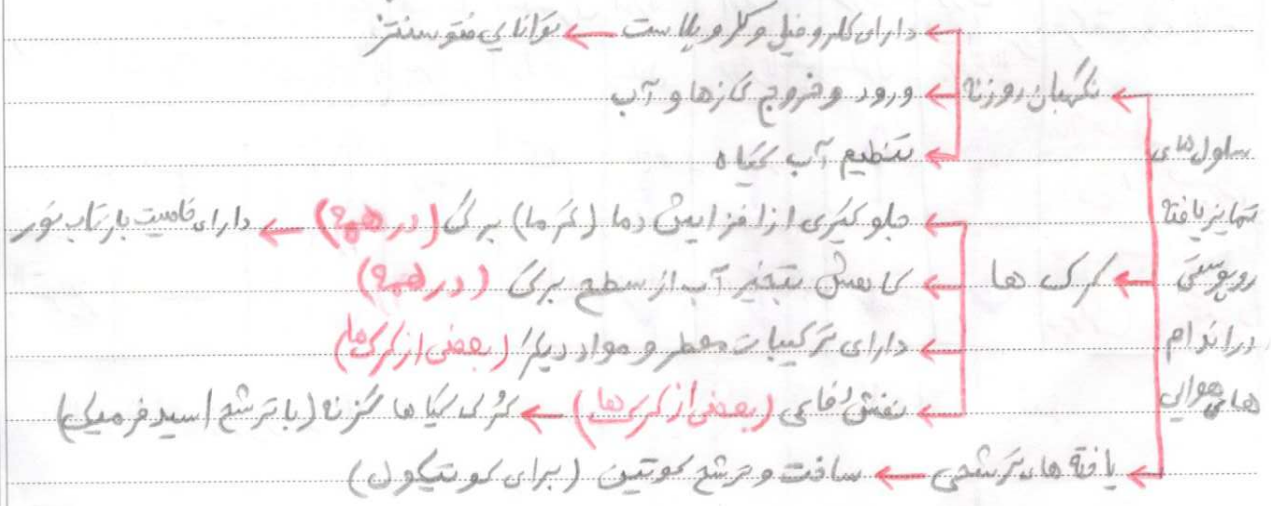 سلول های تمایز یافته روپوستی در اندام های هوایی
نگهبان روزنه
دارای کلروفیل و کلروپلاست ← توانایی فتوسنتز
ورود و خروج گازها و آب
تنظیم آب گیاه
کرک ها
جلوگیری از افزایش دما (گرما) برگ (در همه) ← دارای خاصیت بازتاب نور
کاهش تبخیر آب از سطح برگ (در همه)
دارای ترکیبات معطر و مواد دیگر (بعضی از کرک ها)
نقش دفاعی (بعضی از کرک ها) ← کرک گیاها گزنه (با ترشح اسید فرمیک)
یافته های ترشحی ← ساخت و ترشح کوتین (برای کوتیکول)